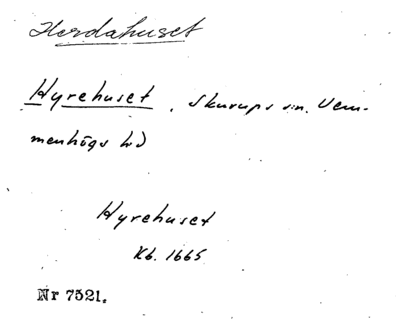 Herdahuset
Hyrehuset, Skurups sn. Vem-
menhögs hd
Hyrehuset
Kb. 1665
Nr 7521.